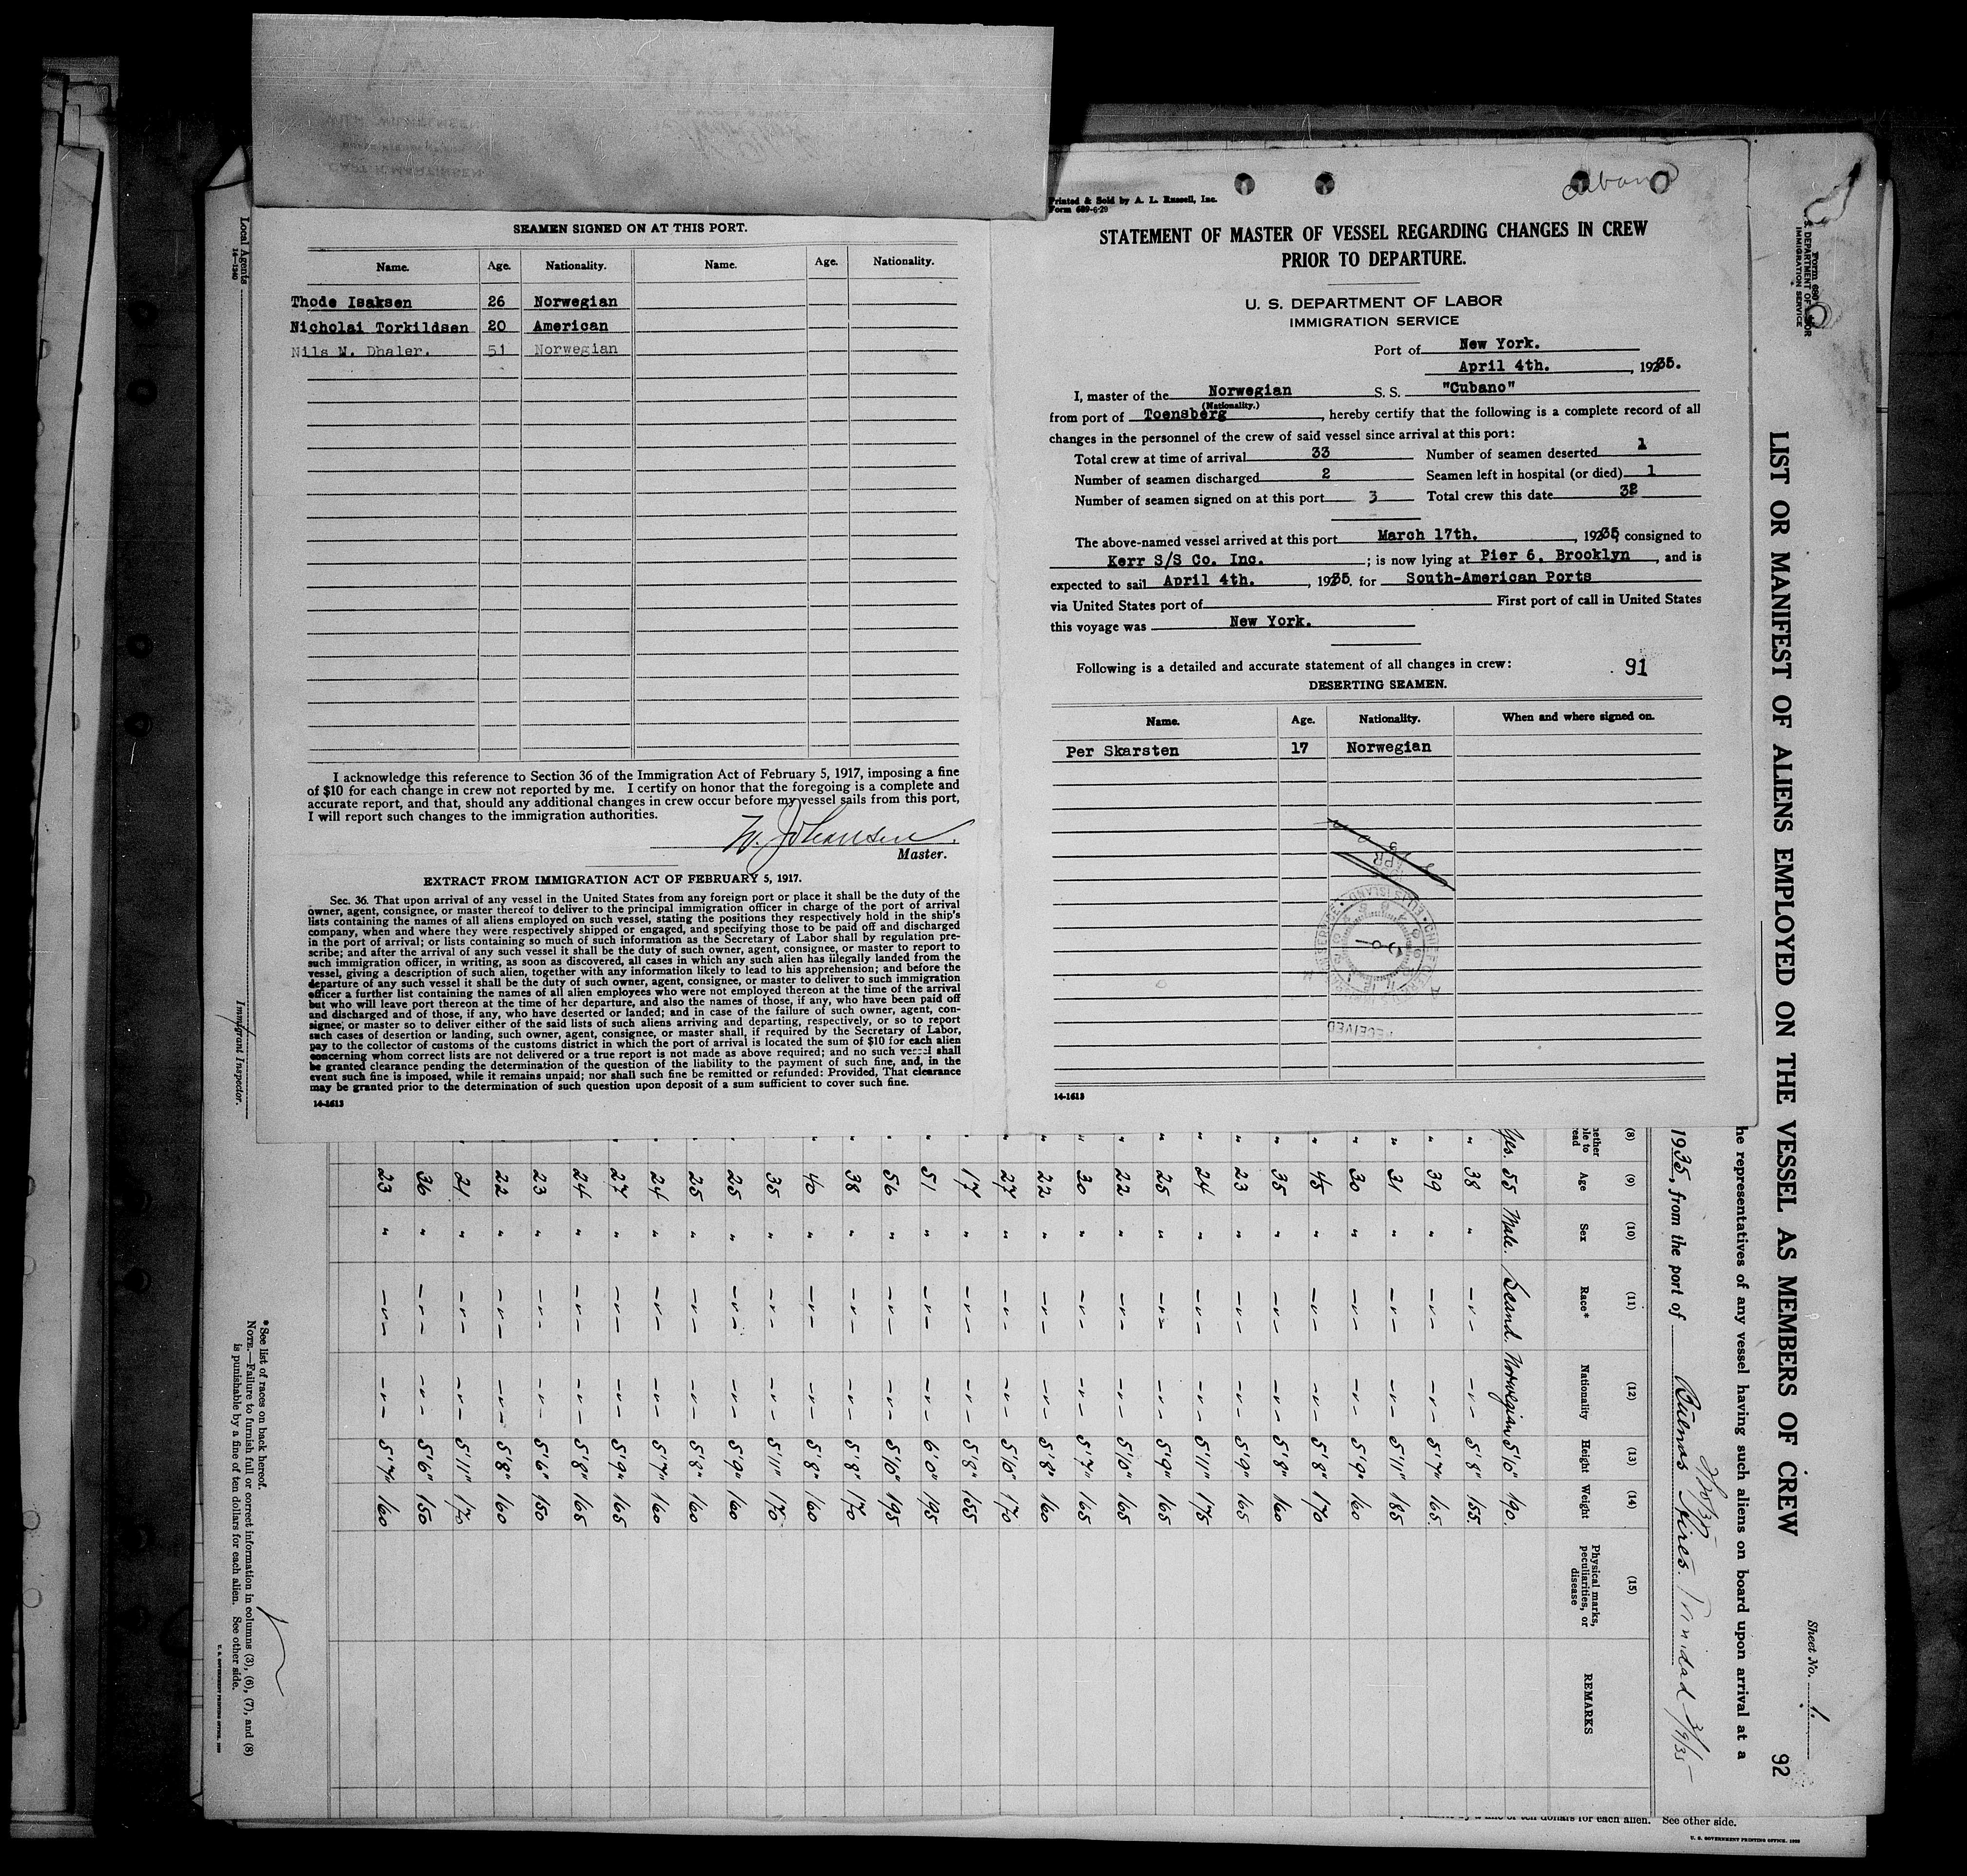 SEAMEN SIGNED ON AT THIS PORT.
Name. Age. Nationality. Name. Age. Nationality.
Thode Isaksen 26 Norwegian
Nicholai Torkildsen 20 American
Nils M. Dhaler. 51 Norwegian
I acknowledge this reference to Section 36 of the Immigration Act of February 5, 1917, imposing a fine
of $10 for each change in crew not reported by me. I certify on honor that the foregoing is a complete and
accurate report, and that, should any additional changes in crew occur before my vessel sails from this port,
I will report such changes to the immigration authorities.
Johansen
Master.
EXTRACT FROM IMMIGRATION ACT OF FEBRUARY 5, 1917.
Sec. 36. That upon arrival of any vessel in the United States from any foreign port or place it shall be the duty of the
owner, agent, consignee, or master thereof to deliver to the principal immigration officer in charge of the port of arrival
lists containing the names of all aliens employed on such vessel, stating the positions they respectively hold in the ship's
company, when and where they were respectively shipped or engaged, and specifying those to be paid off and discharged
in the port of arrival; or lists containing so much of such information as the Secretary of Labor shall by regulation pre-
scribe; and after the arrival of any such vessel it shall be the duty of such owner, agent, consignee, or master to report to
such immigration officer, in writing, as soon as discovered, all cases in which any such alien has illegally landed from the
vessel, giving a description of such alien, together with any information likely to lead to his apprehension; and before the
departure of any such vessel it shall be the duty of such owner, agent, consignee, or master to deliver to such immigration
officer a further list containing the names of all alien employees who were not employed thereon at the time of the arrival
but who will leave port thereon at the time of her departure, and also the names of those, if any, who have been paid off
and discharged and of those, if any, who have deserted or landed; and in case of the failure of such owner, agent, con-
signee, or master so to deliver either of the said lists of such aliens arriving and departing, respectively, or so to report
such cases of desertion or landing, such owner, agent, consignee, or master shall, if required by the Secretary of Labor,
pay to the collector of customs of the customs district in which the port of arrival is located the sum of $10 for each alien
concerning whom correct lists are not delivered or a true report is not made as above required; and no such vessel shall
be granted clearance pending the determination of the question of the liability to the payment of such fine, and, in the
event such fine is imposed, while it remains unpaid; nor shall such fine be remitted or refunded: Provided, That clearance
may be granted prior to the determination of such question upon deposit of a sum sufficient to cover such fine.
14-1613
Cubano
Printed & Sold by A. L. Russell, Inc.
Form 689-6-29
STATEMENT OF MASTER OF VESSEL REGARDING CHANGES IN CREW
PRIOR TO DEPARTURE.
U. S. DEPARTMENT OF LABOR
IMMIGRATION SERVICE
Port of New York.
April 4th., 1935.
I, master of the Norwegian S. S. "Cubano"
(Nationality.)
from port of Toensberg, hereby certify that the following is a complete record of all
changes in the personnel of the crew of said vessel since arrival at this port:
Total crew at time of arrival 33 Number of seamen deserted 1
Number of seamen discharged 2 Seamen left in hospital (or died) 1
Number of seamen signed on at this port 3 Total crew this date 32
The above-named vessel arrived at this port March 17th., 1935, consigned to
Kerr S/S Co. Inc.; is now lying at Pier 6, Brooklyn, and is
expected to sail April 4th., 1935. for South-American Ports
via United States port of First port of call in United States
this voyage was New York.
Following is a detailed and accurate statement of all changes in crew: 91
DESERTING SEAMEN.
Name. Age. Nationality. When and where signed on.
Per Skarsten 17 Norwegian
APR
ELLIS ISLAND
RECEIVED
14-1613
Form 680
U. S. DEPARTMENT OF LABOR
IMMIGRATION SERVICE
Sheet No. 1.
92
LIST OR MANIFEST OF ALIENS EMPLOYED ON THE VESSEL AS MEMBERS OF CREW
he representatives of any vessel having such aliens on board upon arrival at a
1935, from the port of Buenos Aires. Trinidad 3/9/35
(8) (9) (10) (11) (12) (13) (14) (15)
Age Sex Race* Nationality Height Weight Physical marks, peculiarities, or disease REMARKS
Yes. 55 Male. Scand. Norwegian 5'10" 190.
" 38 " -"- -"- 5'8" 155.
" 39 " -"- -"- 5'7" 165.
" 31 " -"- -"- 5'11" 185
" 30 " -"- -"- 5'9" 160
" 45 " -"- -"- 5'8" 170
" 35 " -"- -"- 5'8" 160
" 23 " -"- -"- 5'9" 165
" 24 " -"- -"- 5'11" 175
" 25 " -"- -"- 5'9" 165
" 22 " -"- -"- 5'10" 165
" 30 " -"- -"- 5'7" 165
" 22 " -"- -"- 5'8" 160
" 27 " -"- -"- 5'10" 170
" 17 " -"- -"- 5'8" 155
" 51 " -"- -"- 6'0" 195
" 56 " -"- -"- 5'10" 195
" 38 " -"- -"- 5'8" 170
" 40 " -"- -"- 5'8" 160
" 35 " -"- -"- 5'11" 170
" 25 " -"- -"- 5'9" 160
" 25 " -"- -"- 5'8" 160
" 24 " -"- -"- 5'7" 160
" 27 " -"- -"- 5'9" 165
" 24 " -"- -"- 5'8" 165
" 23 " -"- -"- 5'6" 150
" 22 " -"- -"- 5'8" 160
" 21 " -"- -"- 5'11" 170
" 36 " -"- -"- 5'6" 150
" 23 " -"- -"- 5'7" 160
*See list of races on back hereof.
NOTE.—Failure to furnish full or correct information in columns (3), (6), (7), and (8)
is punishable by a fine of ten dollars for each alien. See other side.
U. S. GOVERNMENT PRINTING OFFICE
Local Agents
14-1240
Immigrant Inspector.
of ten dollars for each alien. See other side.
U. S. GOVERNMENT PRINTING OFFICE
CAPT. H. MARTINSEN